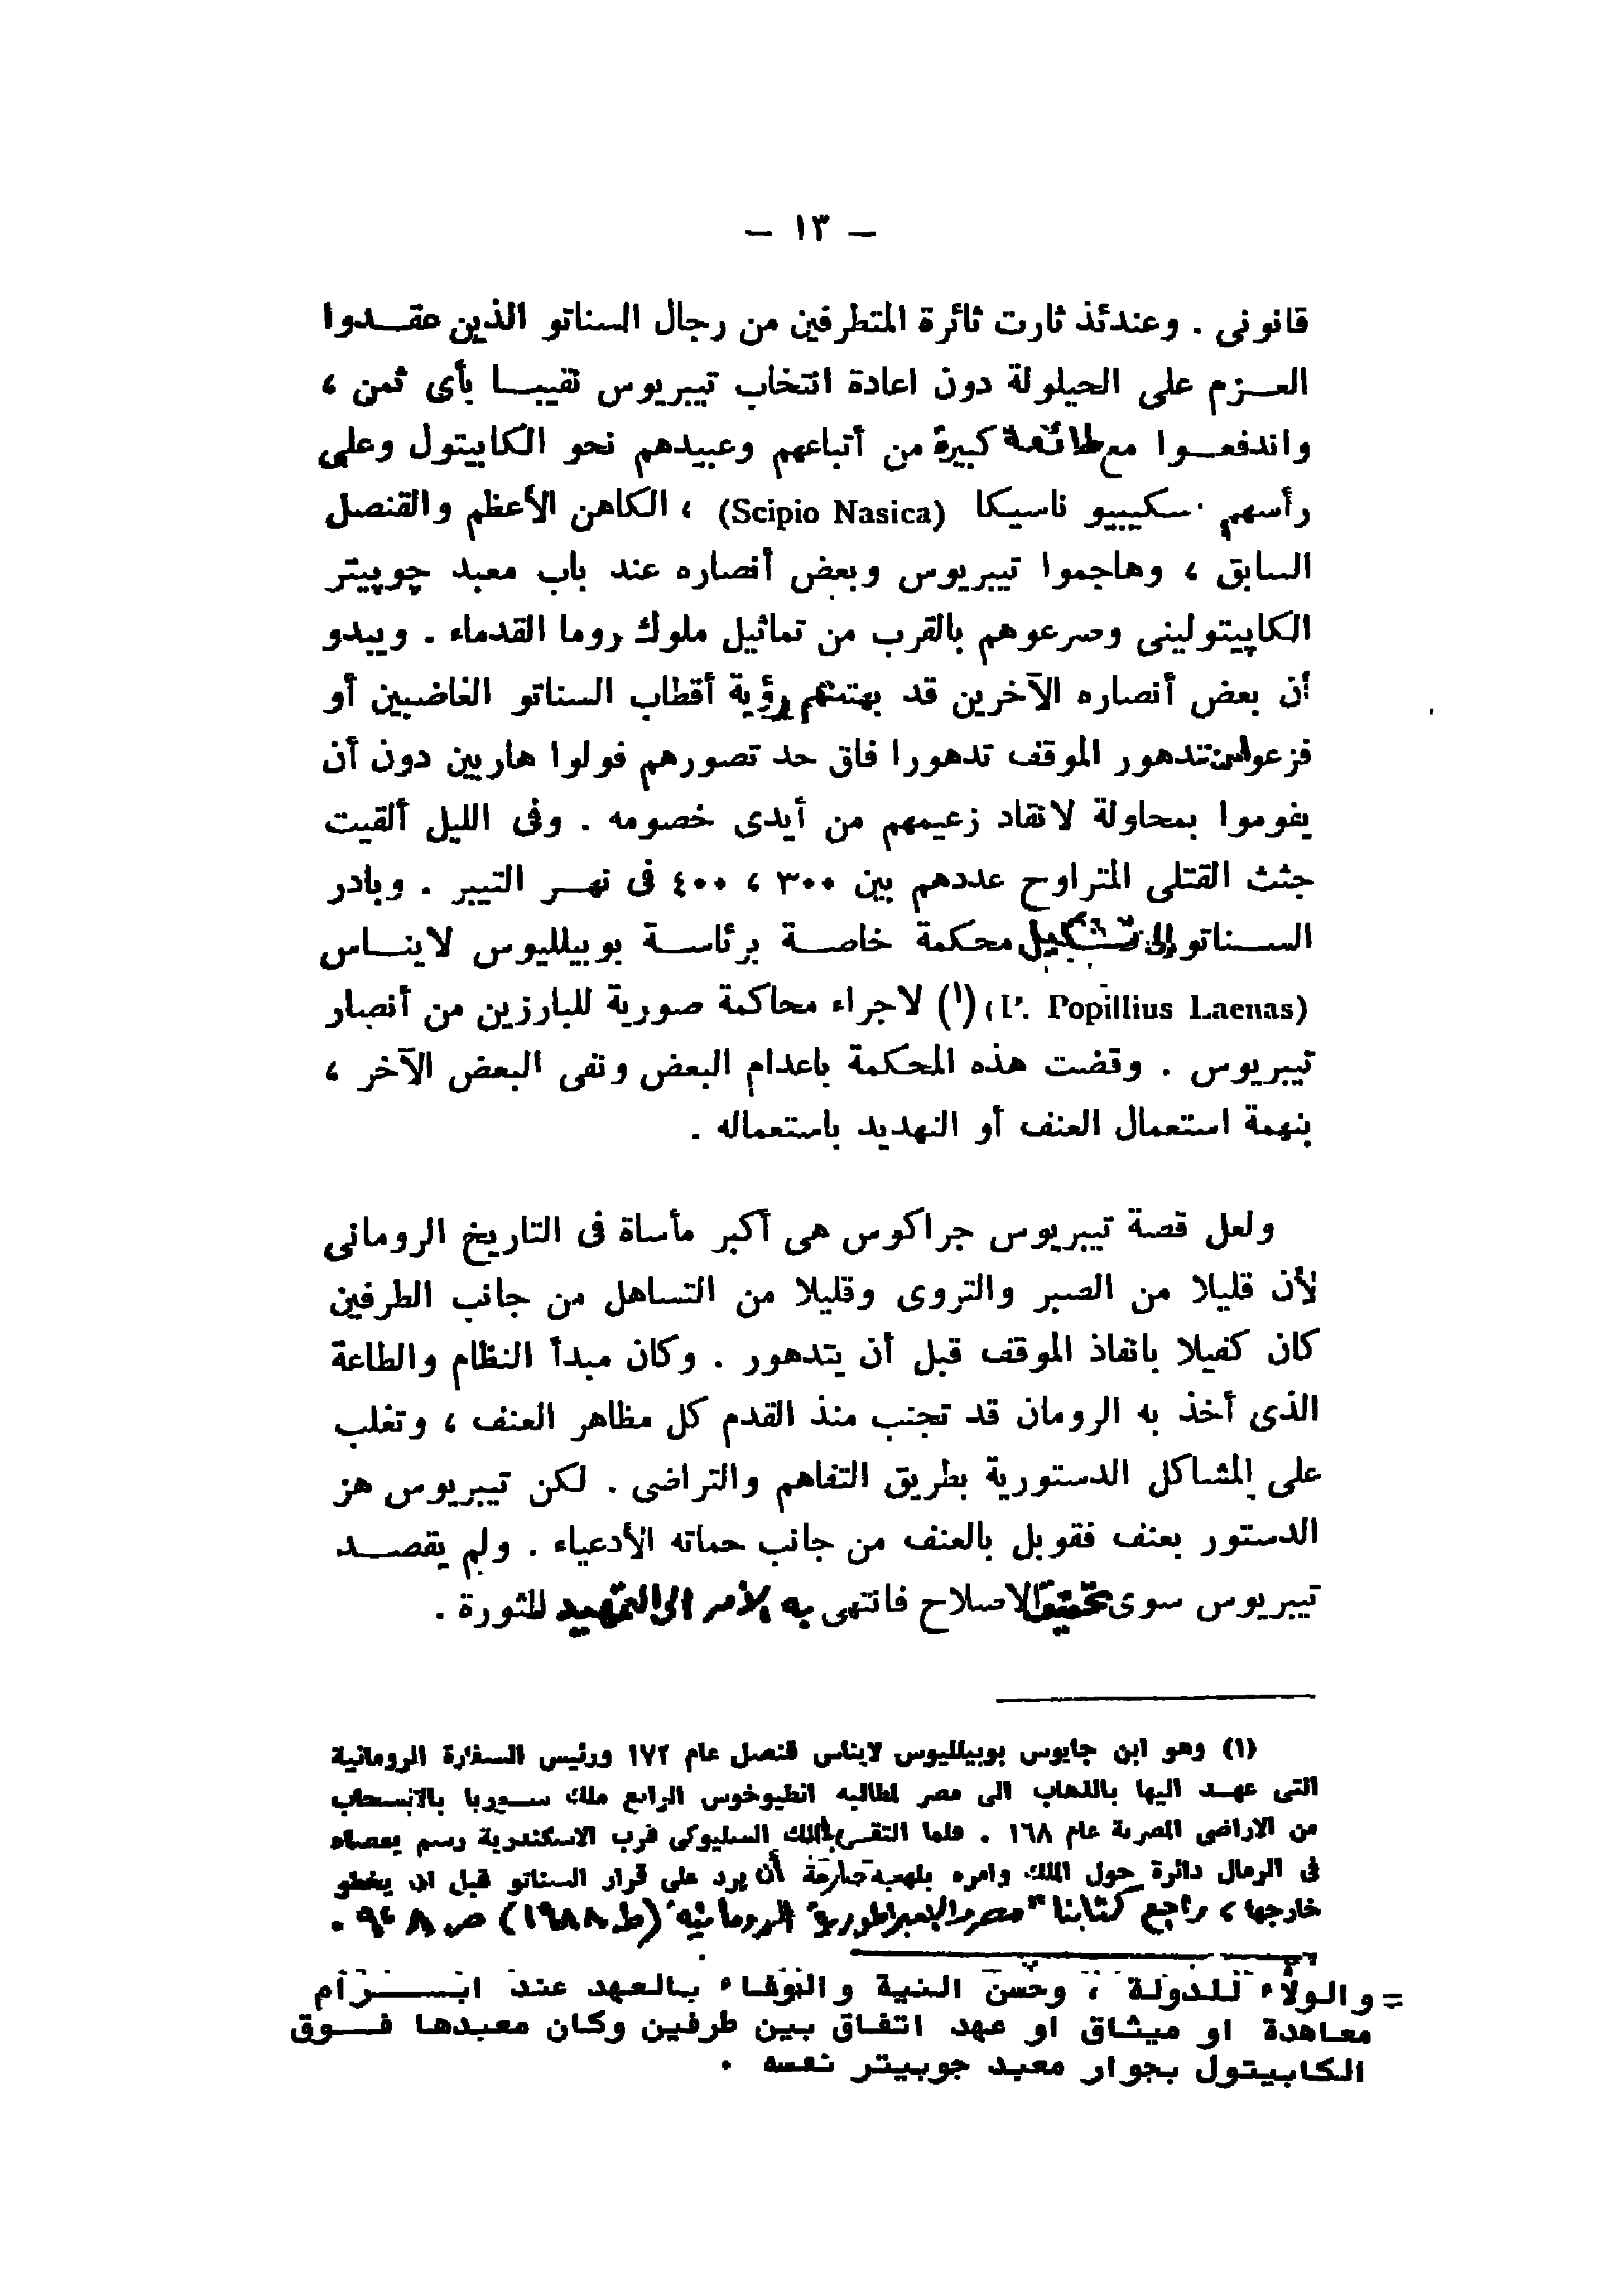 — ١٣ —
قانونى . وعندئذ ثارت ثائرة المتطرفين من رجال السناتو الذين عقــدوا
العــزم على الحيلولة دون اعادة انتخاب تيبريوس نقيبــا بأى ثمن ،
واندفعــوا مع طائفة كبيرة من أتباعهم وعبيدهم نحو الكابيتول وعلى
رأسهم سكيبيو ناسيكا (Scipio Nasica) ، الكاهن الأعظم والقنصل
السابق ، وهاجموا تيبريوس وبعض أنصاره عند باب معبد چوپيتر
الكاپيتولينى وصرعوهم بالقرب من تماثيل ملوك روما القدماء . ويبدو
أن بعض أنصاره الآخرين قد بهتتهم رؤية أقطاب السناتو الغاضبين أو
فزعوا من تدهور الموقف تدهورا فاق حد تصورهم فولوا هاربين دون أن
يقوموا بمحاولة لانقاد زعيمهم من أيدى خصومه . وفى الليل ألقيت
جثث القتلى المتراوح عددهم بين ٣٠٠ ، ٤٠٠ فى نهــر التيبر . وبادر
الســناتو إلى تشكيل محكمة خاصــة برئاســة بوبيلليوس لاينــاس
(P. Popillius Laenas) ، (١) لاجراء محاكمة صورية للبارزين من أنصار
تيبريوس . وقضت هذه المحكمة باعدام البعض ونفى البعض الآخر ،
بتهمة استعمال العنف أو التهديد باستعماله .
ولعل قصة تيبريوس جراكوس هى أكبر مأساة فى التاريخ الرومانى
لأن قليلا من الصبر والتروى وقليلا من التساهل من جانب الطرفين
كان كفيلا بانقاذ الموقف قبل أن يتدهور . وكان مبدأ النظام والطاعة
الذى أخذ به الرومان قد تجنب منذ القدم كل مظاهر العنف ، وتغلب
على المشاكل الدستورية بطريق التفاهم والتراضى . لكن تيبريوس هز
الدستور بعنف فقوبل بالعنف من جانب حماته الأدعياء . ولم يقصــد
تيبريوس سوى تحقيق الاصلاح فانتهى به الأمر الى التمهيد للثورة .
(١) وهو ابن جايوس بوبيلليوس لايناس قنصل عام ١٧٢ ورئيس السفارة الرومانية
التى عهــد اليها بالذهاب الى مصر لمطالبه انطيوخوس الرابع ملك ســوريا بالانسحاب
من الاراضى المصرية عام ١٦٨ . فلما التقــى بالملك السليوكى قرب الاسكندرية رسم بعصاه
فى الرمال دائرة حول الملك وامره بلهجة صارمة أن يرد على قرار السناتو قبل ان يخطو
خارجها ، راجع كتابنا "مصر والإمبراطورية الرومانية" (ط ١٩٨٨) ص ٨ ، ٩ .
= والولاء للدولة ، وحسن النية والوفاء بالعهد عند ابــرام
معاهدة او ميثاق او عهد اتفاق بين طرفين وكان معبدها فــوق
الكابيتول بجوار معبد جوبيتر نفسه .